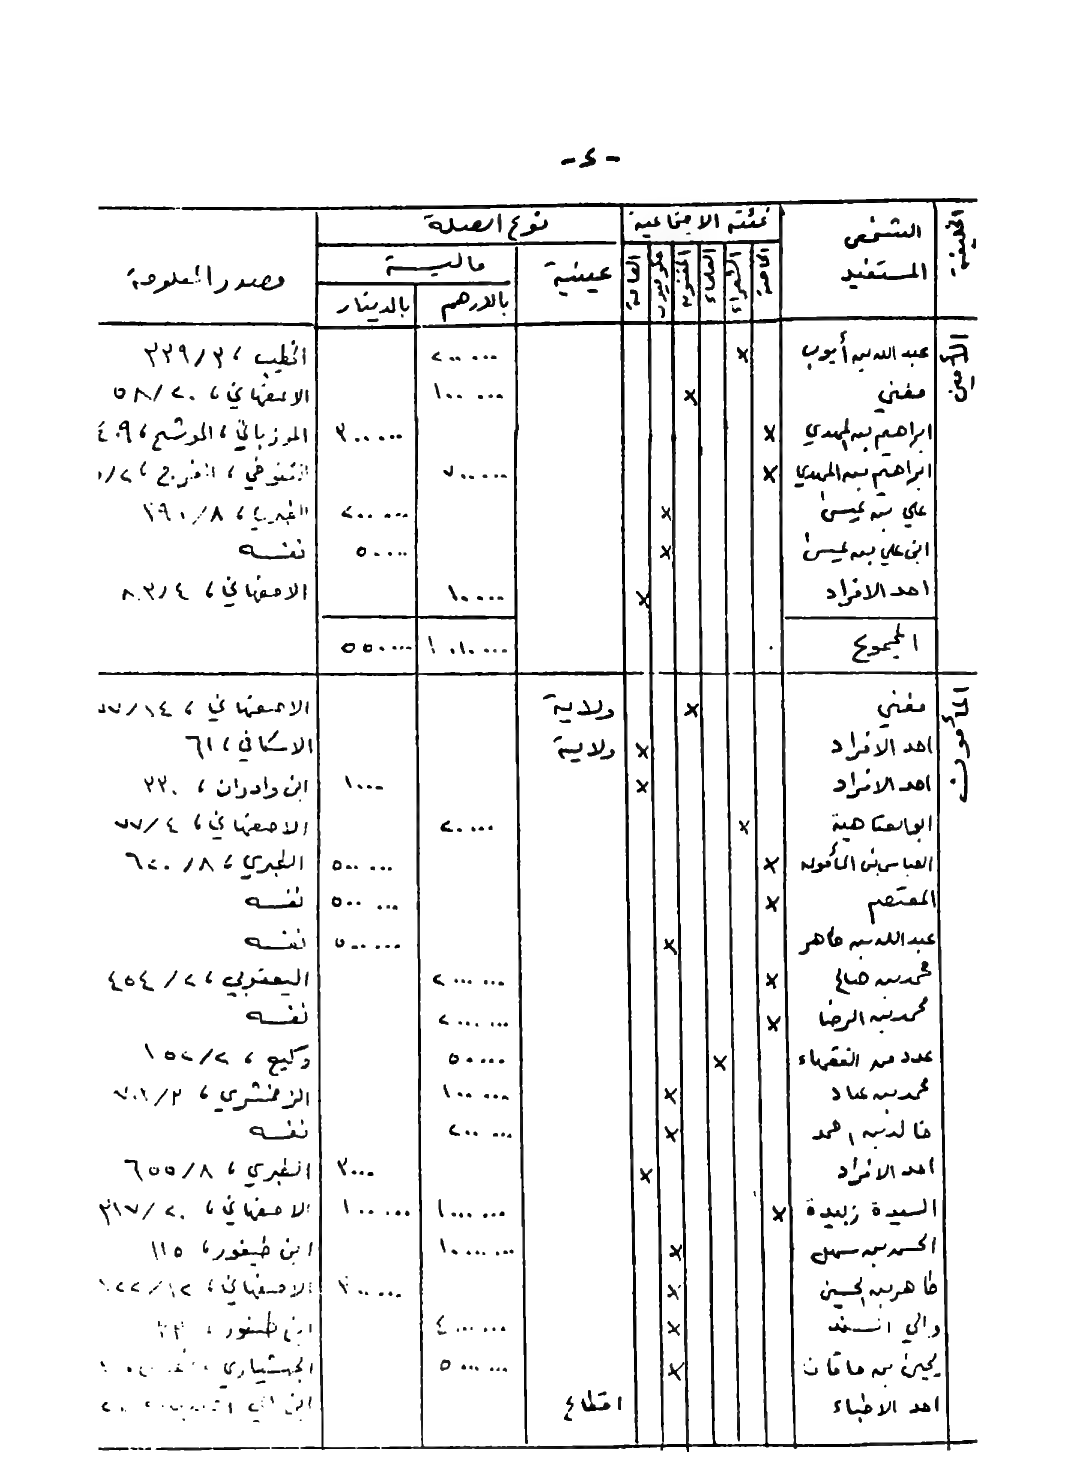 - ٤ -
الخليفة | الشخص المستفيد | فئته الاجتماعية | نوع الصلة | مصدر المعلومة
الخاصة | الشعراء | العلماء | المغنون | العامة | عينية | مالية
بالدرهم | بالدينار
الأمين
عبدالله بن أيوب | x | ٢٠٠٠٠٠ | الخطيب ، ٣/٣٣٩
مغني | x | ١٠٠٠٠٠ | الاصفهاني ، ٢٠/٥٨
ابراهيم بن المهدي | x | ٣٠٠٠٠٠ | المرزباني ، الموشح ، ٤٠٩
ابراهيم بن المهدي | x | ٧٠٠٠٠٠ | التنوخي ، الفرج ،
علي بن عيسى | x | ٢٠٠٠٠٠ | الطبري ، ٨/٣٩٠
ابن علي بن عيسى | x | ٥٠٠٠٠ | نفسه
احد الافراد | x | ١٠٠٠٠ | الاصفهاني ، ٤/٨٠٣
المجموع | ٥٥٠٠٠٠
المأمون
مغني | x | ولاية | الاصفهاني ،
احد الافراد | x | ولاية | الاسكافي ، ٦١
احد الافراد | x | ١٠٠٠ | ابن وادران ، ٢٢٠
ابو العتاهية | x | ٢٠٠٠٠ | الاصفهاني ، ٤/٧٧
العباس بن المأمون | x | ٥٠٠٠٠٠ | الطبري ، ٨/٦٢٠
المعتصم | x | ٥٠٠٠٠٠ | نفسه
عبدالله بن طاهر | x | ٥٠٠٠٠٠ | نفسه
محمد بن صالح | x | ٢٠٠٠٠٠٠ | اليعقوبي ، ٢/٤٥٤
محمد بن الرضا | x | ٢٠٠٠٠٠٠ | نفسه
عدد من الفقهاء | x | ٥٠٠٠٠ | وكيع ، ٢/١٥٢
محمد بن عباد | x | ١٠٠٠٠٠ | الزمخشري ، ٢/٧٠١
خالد بن احمد | x | ٢٠٠٠٠٠ | نفسه
احد الافراد | x | ٣٠٠٠ | الطبري ، ٨/٦٥٥
السيدة زبيدة | x | ١٠٠٠٠٠٠ | ١٠٠٠٠٠ | الاصفهاني ، ٢٠/٣١٧
الحسن بن سهل | x | ١٠٠٠٠٠٠٠ | ابن طيفور ، ١١٥
طاهر بن الحسين | x | الاصفهاني ،
والي السند | x | ٤٠٠٠٠٠٠ | ابن طيفور ،
يحيى بن خاقان | x | ٥٠٠٠٠٠٠ | الجهشياري
احد الاطباء | اقطاع | ابن ابي